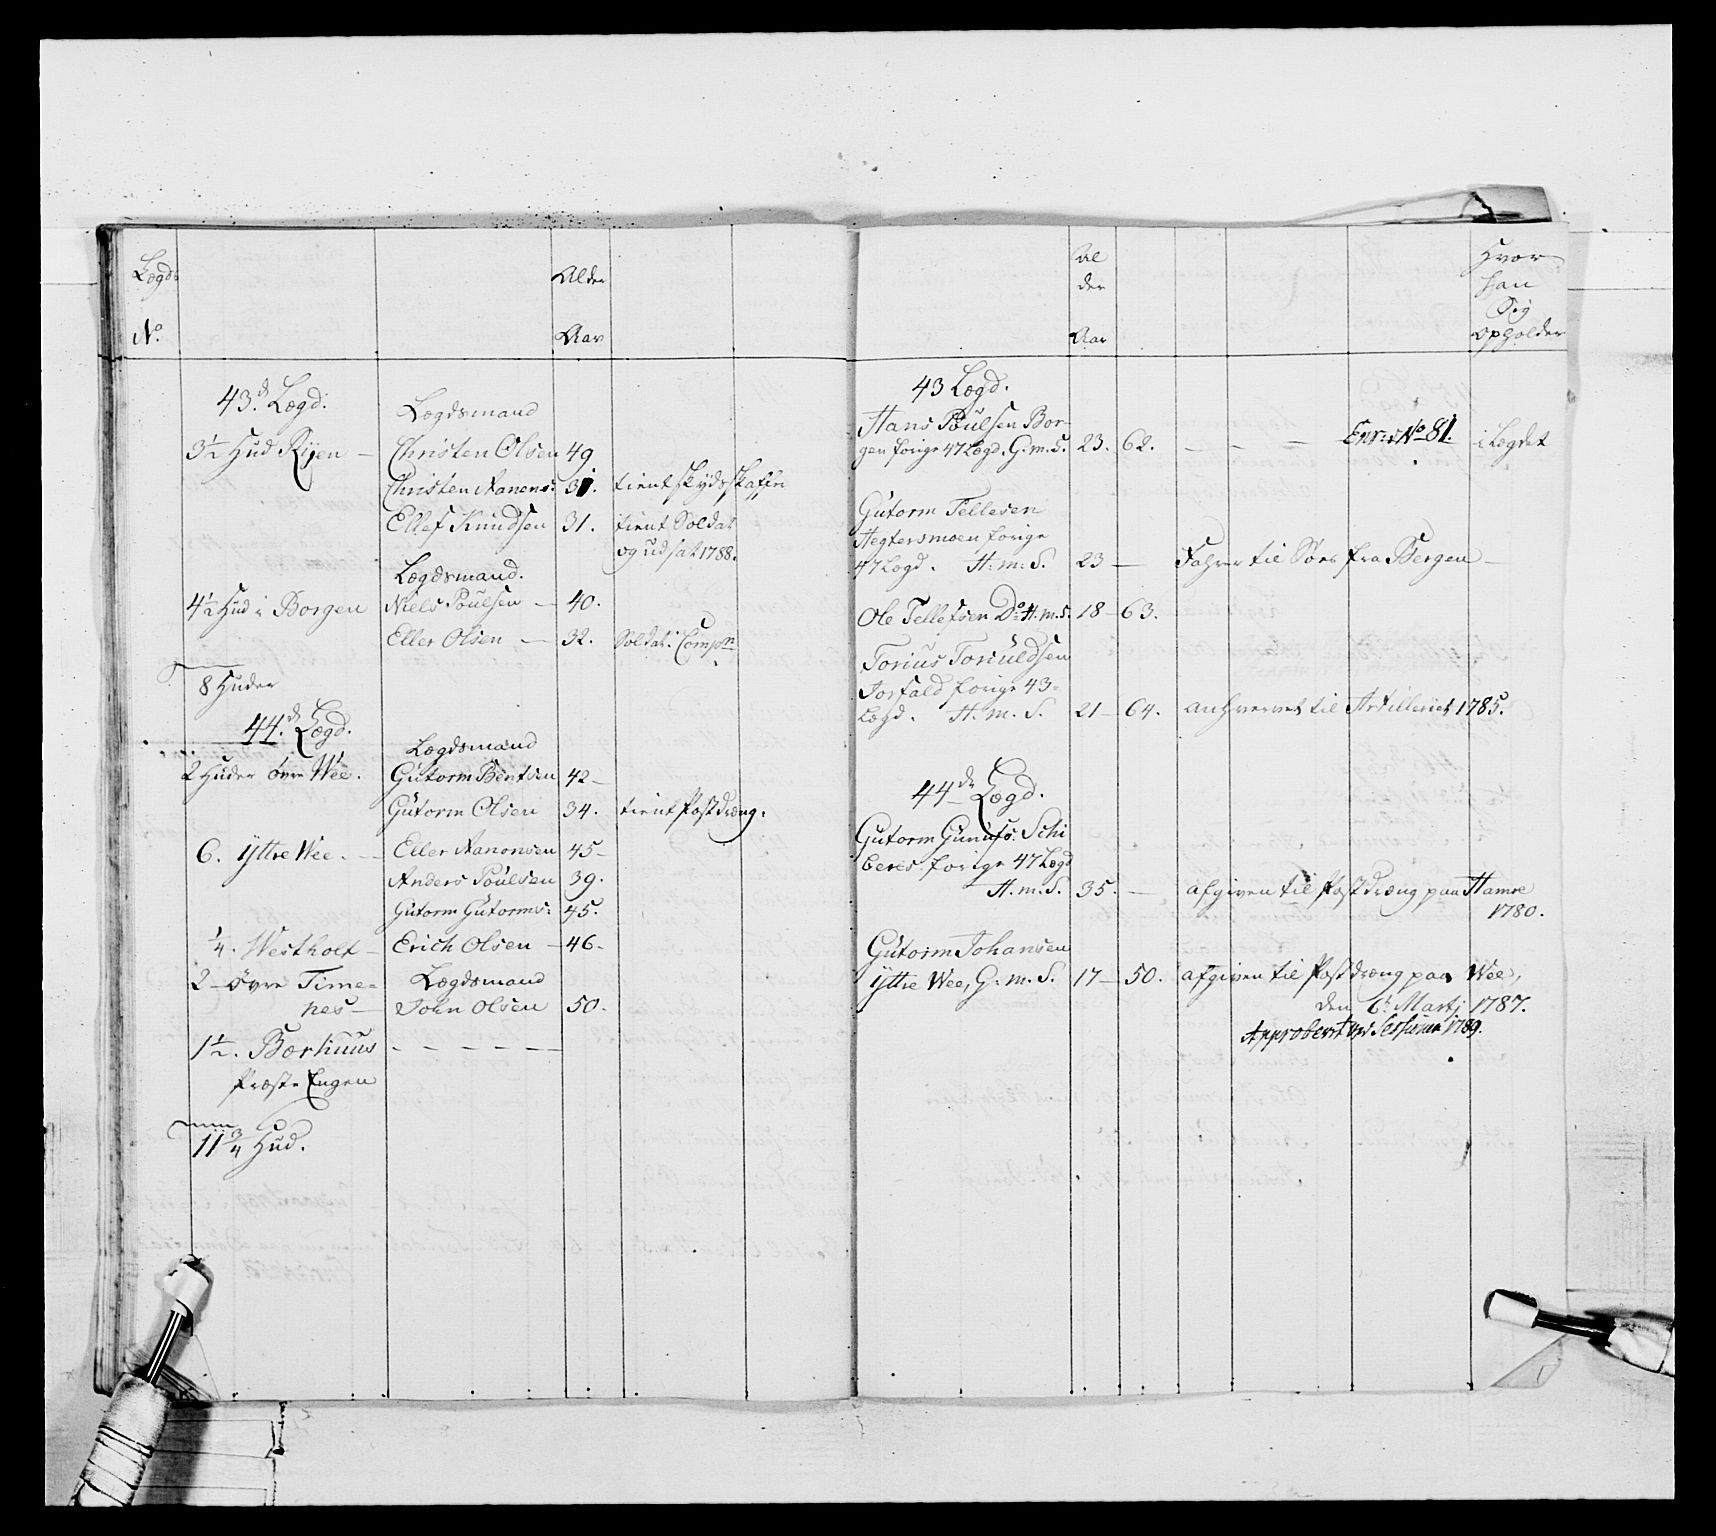 Lægds
No.
Alder
Aar
43.d Lægd.
Lægdsmand
3½ Hud Rijen — Christen Olsen 49
Christen Aanens: 31. tient skydsskaffer
Ellef Knudsen 31. tient Soldat
og udsat 1788.
Lægdsmand.
4½ Hud i Borgen Niels Poulsen — 40.
Eller Olsen — 32. Soldat i Comp.n
8 Huder
44.de Lægd.
Lægdsmand
2 Huder övre Wee. Gutorm Bentsen 42–
Gutorm Olsen 34. tient Postdreng.
6. Yttre Wee. — Eller Aanonsen 45–
Anders Poulsen 39.
Gutorm Gutorms: 45.
¼. Westholt — Erich Olsen — 46–
2 – Övre Time- Lægdsmand
nes — John Olsen 50.
1½. Bærhuus – – – – –
Præste Engen
11¾ Hud.
Al
der
Aar
Hvor
han
Sig
opholder
43 Lægd.
Hans Poulsen Bor-
gen forige 47 Lægd. G. m. S. 23. 62. – – – Enr: No 81. i Lægdet
Gutorm Tellesen
Aegtersmoen forige
47 Lægd. H. m. S. 23 — Fahrer til Söes fra Bergen —
Ole Tellefsen Do H. m. S. 18 – 63.
Torius Toruldsen
forige 43-
Lægd. H. m. S. 21 – 64. anhvervet til Artilleriet 1785.
44de Lægd.
Gutorm Gunufs: Schi
beres forige 47 Lægd
H. m. S. 35. — afgiven til Postdreng paa Hamre
1780.
Gutorm Johansen
Yttre Wee, G. m. S. 17 – 50. afgiven til Postdreng paa Wee,
den 6t Martj 1787.
Approberet ved Sessionen 1789.